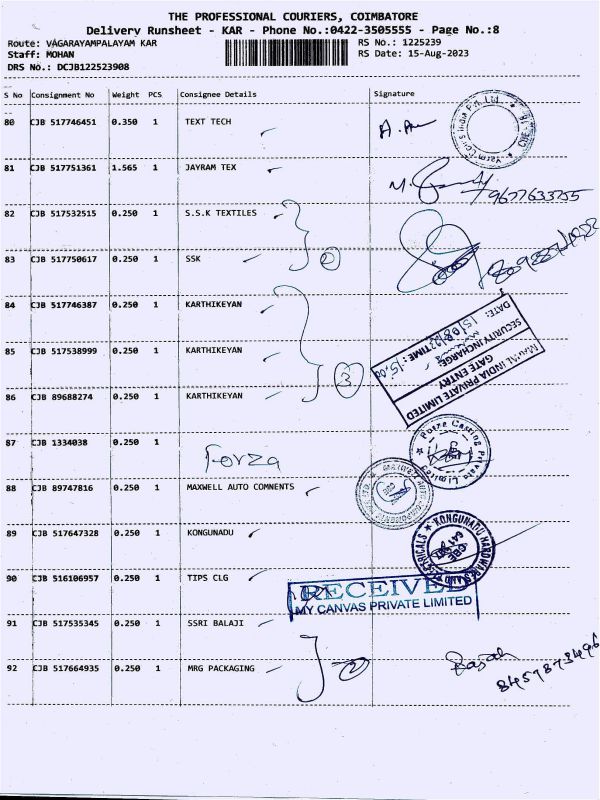 THE PROFESSIONAL COURIERS, COIMBATORE
Delivery Runsheet - KAR - Phone No.:0422-3505555 - Page No.:8
Route: VAGARAYAMPALAYAM KAR RS No.: 1225239
Staff: MOHAN RS Date: 15-Aug-2023
DRS No.: DCJB122523908
S No Consignment No Weight PCS Consignee Details Signature
80 CJB 517746451 0.350 1 TEXT TECH
81 CJB 517751361 1.565 1 JAYRAM TEX
9677633755
82 CJB 517532515 0.250 1 S.S.K TEXTILES
83 CJB 517750617 0.250 1 SSK
2
84 CJB 517746387 0.250 1 KARTHIKEYAN
85 CJB 517538999 0.250 1 KARTHIKEYAN
3
86 CJB 89688274 0.250 1 KARTHIKEYAN
INDIA PRIVATE LIMITED
GATE ENTRY
SECURITY INCHARGE:
DATE: 15/08/23 TIME: 15:00
87 CJB 1334038 0.250 1
Forza
88 CJB 89747816 0.250 1 MAXWELL AUTO COMNENTS
89 CJB 517647328 0.250 1 KONGUNADU
KONGUNADU HARDWARE AND ELECTRICALS
90 CJB 516106957 0.250 1 TIPS CLG
RECEIVED
MY CANVAS PRIVATE LIMITED
91 CJB 517535345 0.250 1 SSRI BALAJI
92 CJB 517664935 0.250 1 MRG PACKAGING
2
8457873496